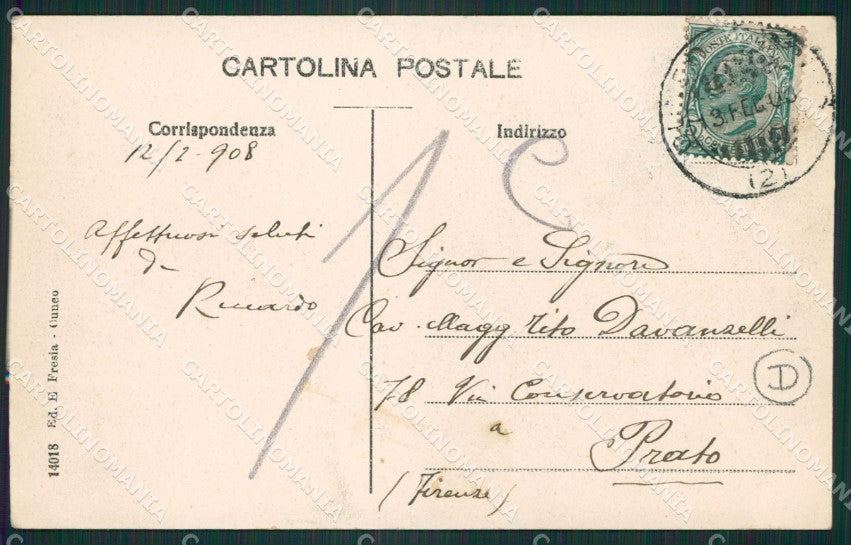 CARTOLINA POSTALE
Corrispondenza
12/2-908
Affettuosi saluti
di
Riccardo
Indirizzo
Signor e Signora
Cav. Magg Tito Davanzelli
78 Via Conservatorio
a
Prato
(Firenze)
D
(2)
14018 Ed. E Fresia - Cuneo
CARTOLINOMANIA